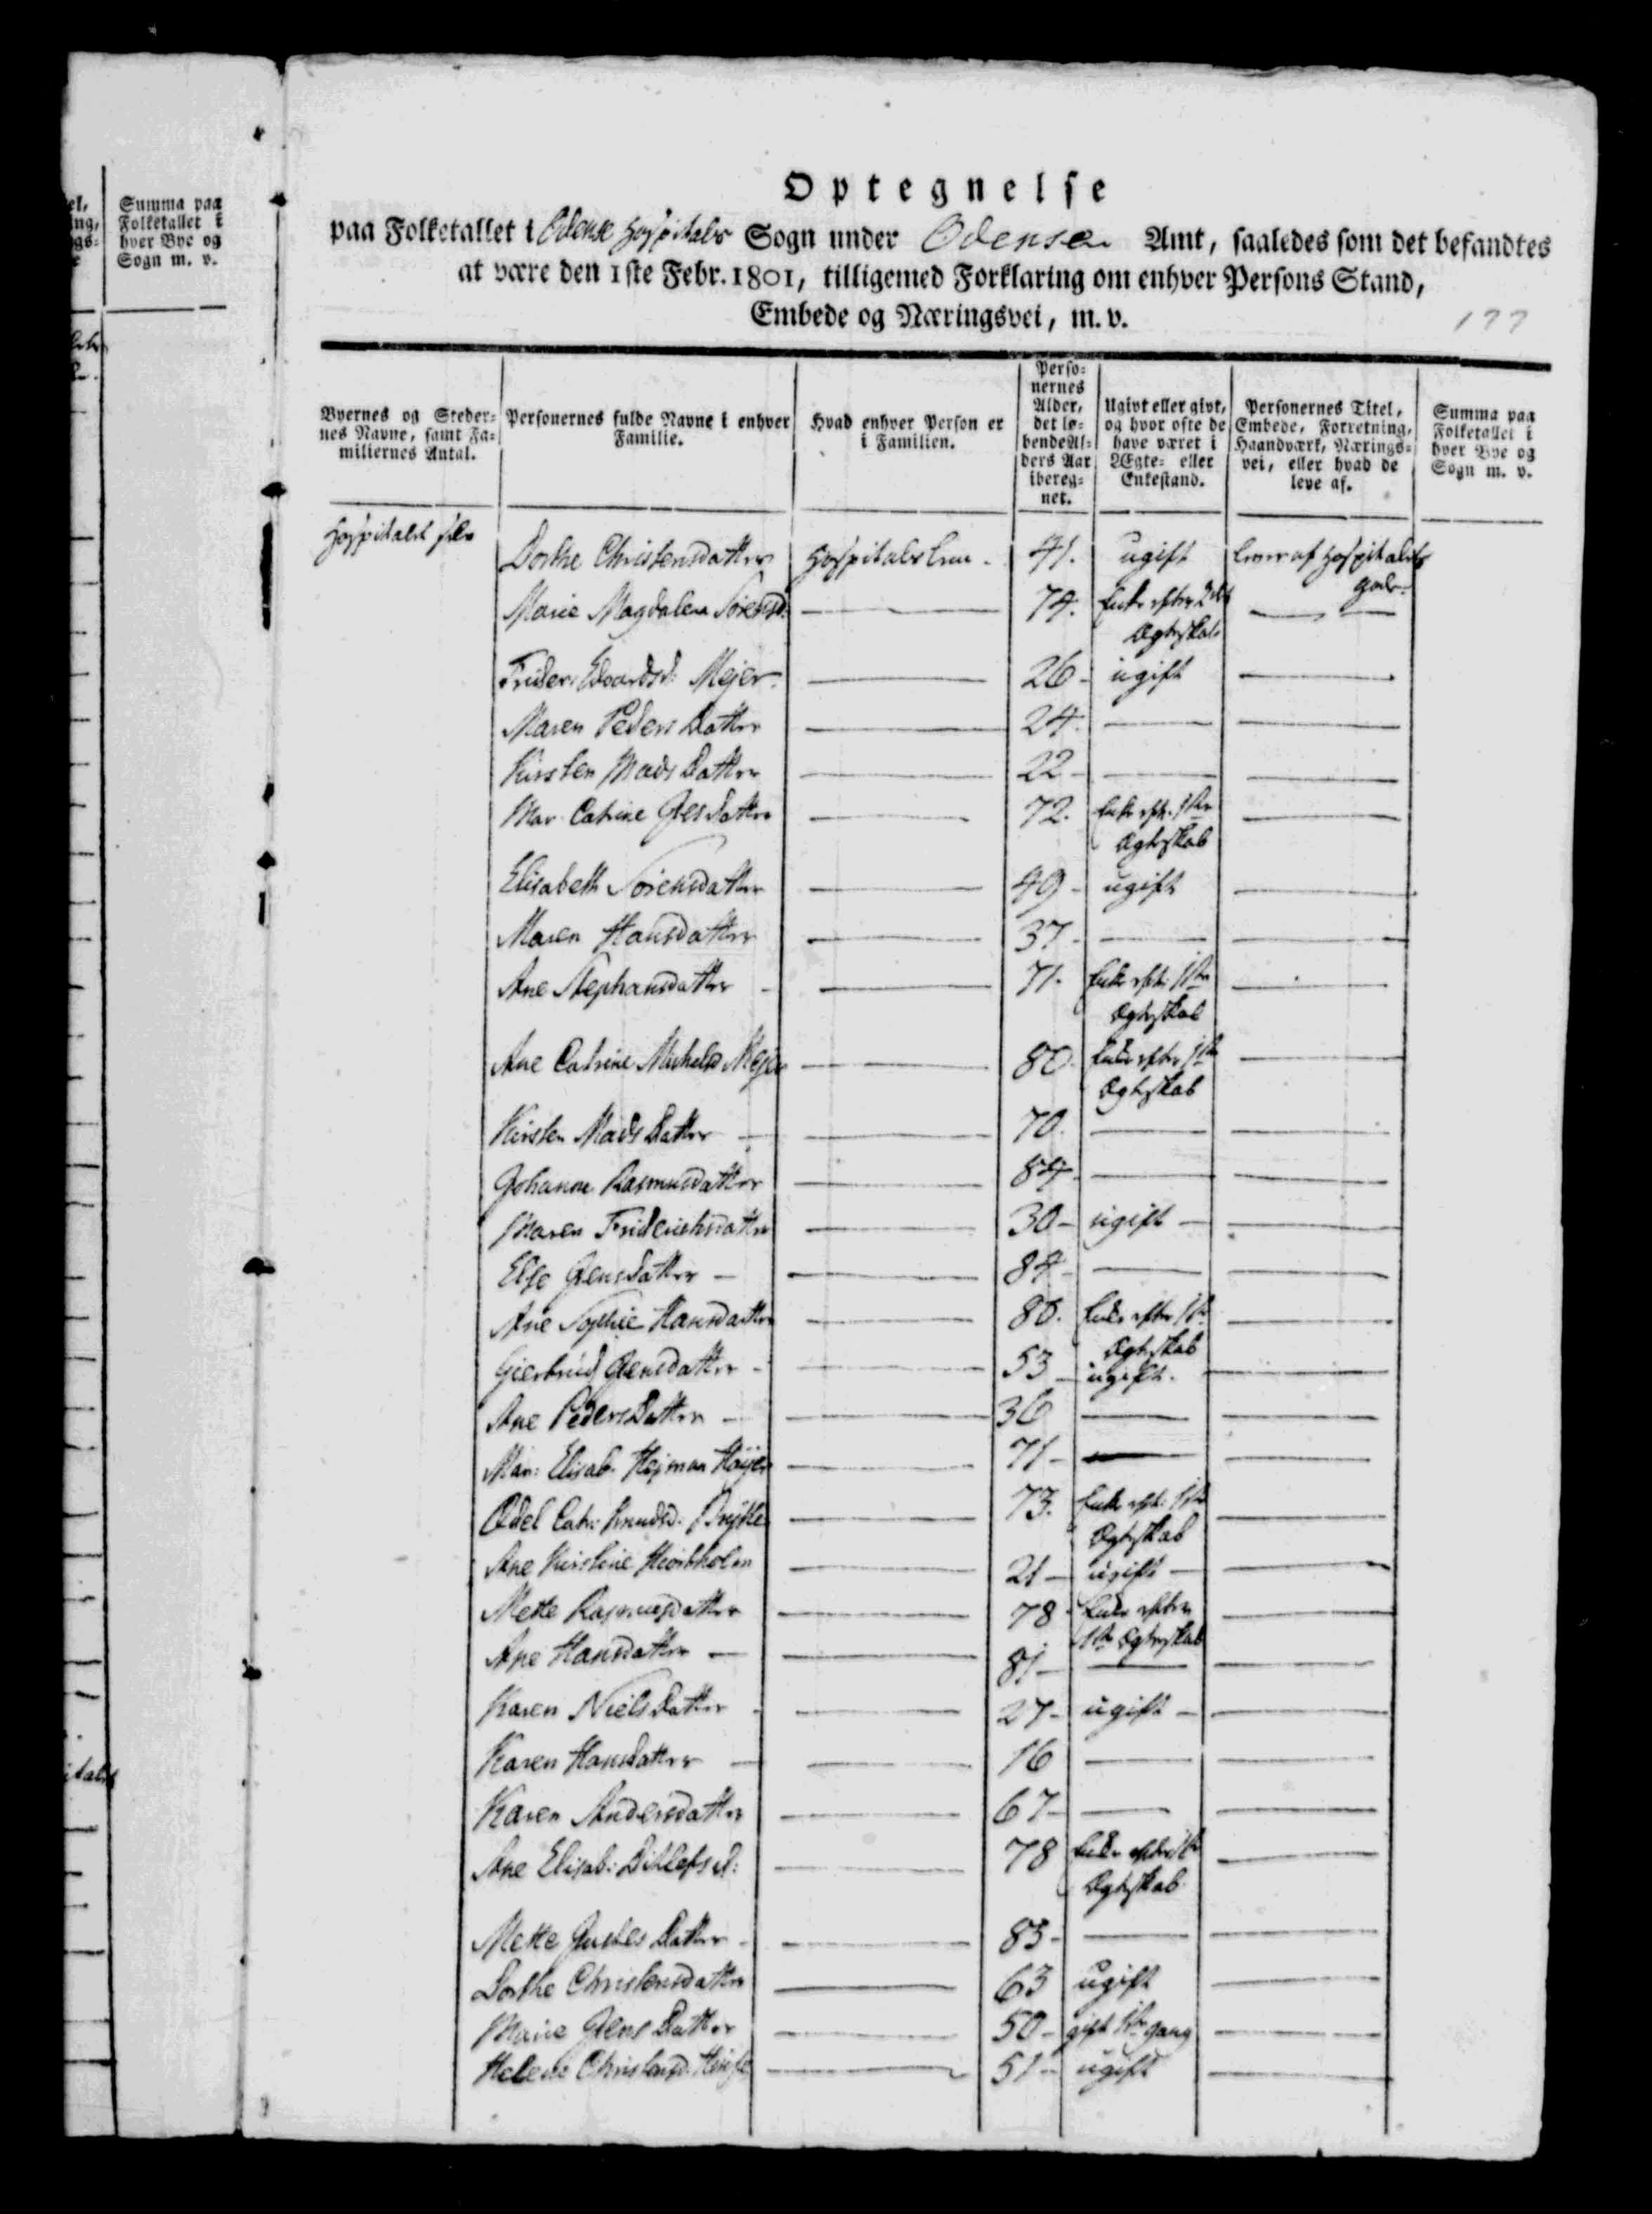 el,
ng,
gs=
e
Summa paa
Folketallet i
hver Bye og
Sogn m. v.
Optegnelse
paa Folketallet i Odense Hospitals Sogn under Odense Amt, saaledes som det befandtes
at være den 1ste Febr. 1801, tilligemed Forklaring om enhver Persons Stand,
Embede og Næringsvei, m. v.
177
Byernes og Steder=
nes Navne, samt Fa=
miliernes Antal.
Personernes fulde Navne i enhver
Familie.
Hvad enhver Person er
i Familien.
Perso=
nernes
Alder,
det lø=
bende Al=
ders Aar
ibereg=
net.
Ugivt eller givt,
og hvor ofte de
have været i
Ægte= eller
Enkestand.
Personernes Titel,
Embede, Forretning,
Haandværk, Nærings=
vei, eller hvad de
leve af.
Summa paa
Folketallet i
hver Bye og
Sogn m. v.
Hospitalet
Dorthe Christensdatter Hospitalslem 41. ugift lever af Hospitalets
gods
Marie Magdalena Sørensd: 74. Enke efter 2det
Ægteskab
Frider: Edvardsd: Mejer 26 - ugift
Maren Peders Datter 24.
Kirsten Mads Datter 22 -
Mar. Catrine Jesdatter 72. Enke eft. 1ste
Ægteskab
Elisabeth Sørensdatter 49 - ugift
Maren Hansdatter 37 -
Ane Stephansdatter 71. Enke eft. 1ste
Ægteskab
Ane Catrine Michelsd Mejer 80. Enke efter 1ste
Ægteskab
Kirsten Mads Datter 70.
Johanne Rasmusdatter 84 -
Maren Friderichsdatter 30 - ugift
Else Jensdatter 84 -
Ane Sophie Hansdatter 86. Enke efter 1ste
Ægteskab
Giertrud Jensdatter 53 ugift.
Ane PedersDatter 36
Mar: Elisab. Hejman Høyer 71 -
Edel Catr: Knudsd. 73. Enke eft: 1ste
Ægteskab
Ane Kirstine Hiortholm 21 - ugift
Mette Rasmusdatter 78 - Enke efter
1ste Ægteskab
Ane Hansdatter 81 -
Karen Niels Datter 27 - ugift
Karen Hansdatter 16
Karen Andersdatter 67 -
Ane Elisab: Ditlefsd: 78 Enke efter 1ste
Ægteskab
Mette Datter 83 -
Dorthe Christensdatter 63 ugift
Marie Jens Datter 50 - gift 1ste gang
Helene Christensd. 51 - ugift